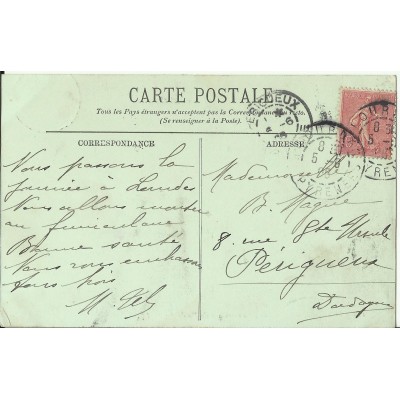 CARTE POSTALE
Tous les Pays étrangers n'acceptent pas la Correspondance au recto.
(Se renseigner à la Poste).
CORRESPONDANCE
ADRESSE
Nous passons la
journée à Lourdes
Nous allons monter
au funiculaire
Bonne santé
Nous vous embrassons
tous trois
Mademoiselle
B. Magne
8. rue Ste Ursule
Périgueux
Dordogne
PERIGUEUX